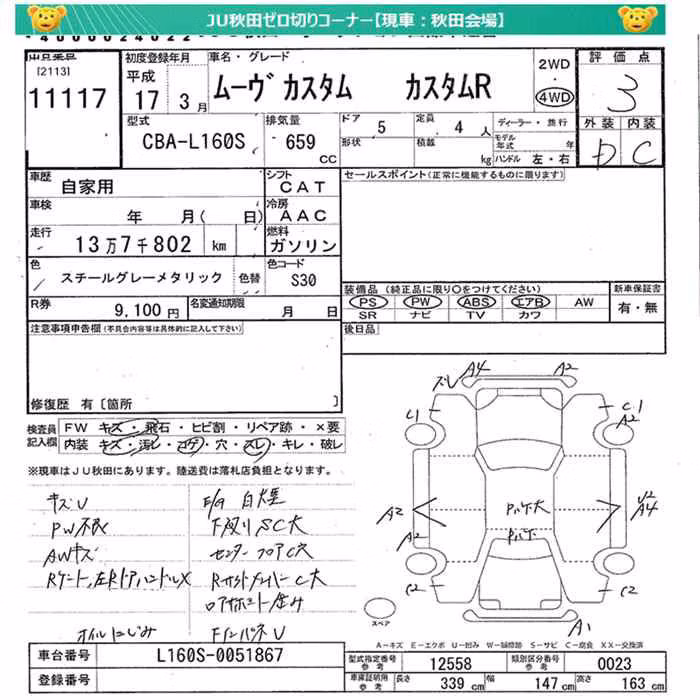 JU秋田ゼロ切りコーナー【現車：秋田会場】
出品番号
[2113]
11117
初度登録年月
平成
17 3月
車名・グレード
ムーヴカスタム カスタムR
2WD
・
4WD
評価点
3
外装 内装
D C
型式
CBA-L160S
排気量
659
CC
ドア 5
形状
定員 4 人
積載 kg
ディーラー・並行
モデル年式 年
ハンドル 左・右
車歴
自家用
シフト
CAT
車検
年 月( 日)
冷房
AAC
走行
13万7千802 km
燃料
ガソリン
色
スチールグレーメタリック
色替
色コード
S30
R券
9,100円
名変通知期限
月 日
セールスポイント(正常に機能するものに限ります)
装備品(純正品に限り○をつけてください)
PS PW ABS エアB AW
SR ナビ TV カワ
新車保証書
有・無
後日品
注意事項申告欄(不具合内容等は具体的に記入して下さい)
修復歴 有〔箇所 〕
検査員
記入欄
FW キズ・飛石・ヒビ割・リペア跡・×要
内装 キズ・汚レ・コゲ・穴・スレ・キレ・破レ
※現車はJU秋田にあります。陸送費は落札店負担となります。
キズU
PW不良
AWキズ
オイルにじみ
E/g 白煙
下廻りSC大
センターフロアC穴
FインパネU
ズレ A4 A2
C1
C1
A2
A2
A2
U2
A4
C2
C2
A1
スペア
A－キズ E－エクボ U－凹み W－補修跡 S－サビ C－腐食 XX－交換済
車台番号
L160S-0051867
登録番号
型式指定番号
参考
12558
類別区分番号
参考
0023
車庫証明用
参考
長さ 339 cm
幅 147 cm
高さ 163 cm